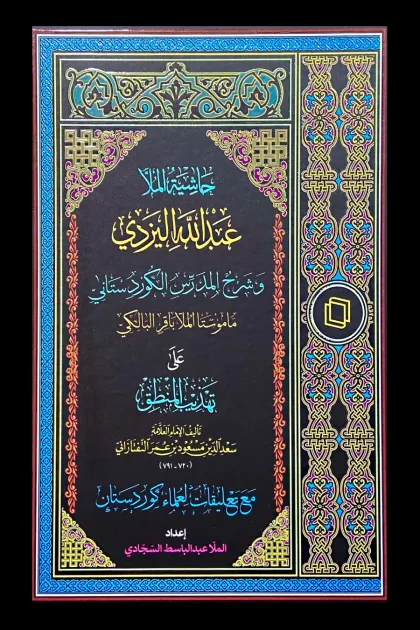 حاشية الملا
عبدالله اليزدي
وشرح المدرس الكوردستاني
ماموستا الملا باقر البالكي
على
تهذيب المنطق
تأليف الإمام العلامة
سعد الدين مسعود بن عمر التفتازاني
(٧٢٠ - ٧٩١)
مع تعليقات لعلماء كوردستان
إعداد
الملا عبدالباسط السجادي